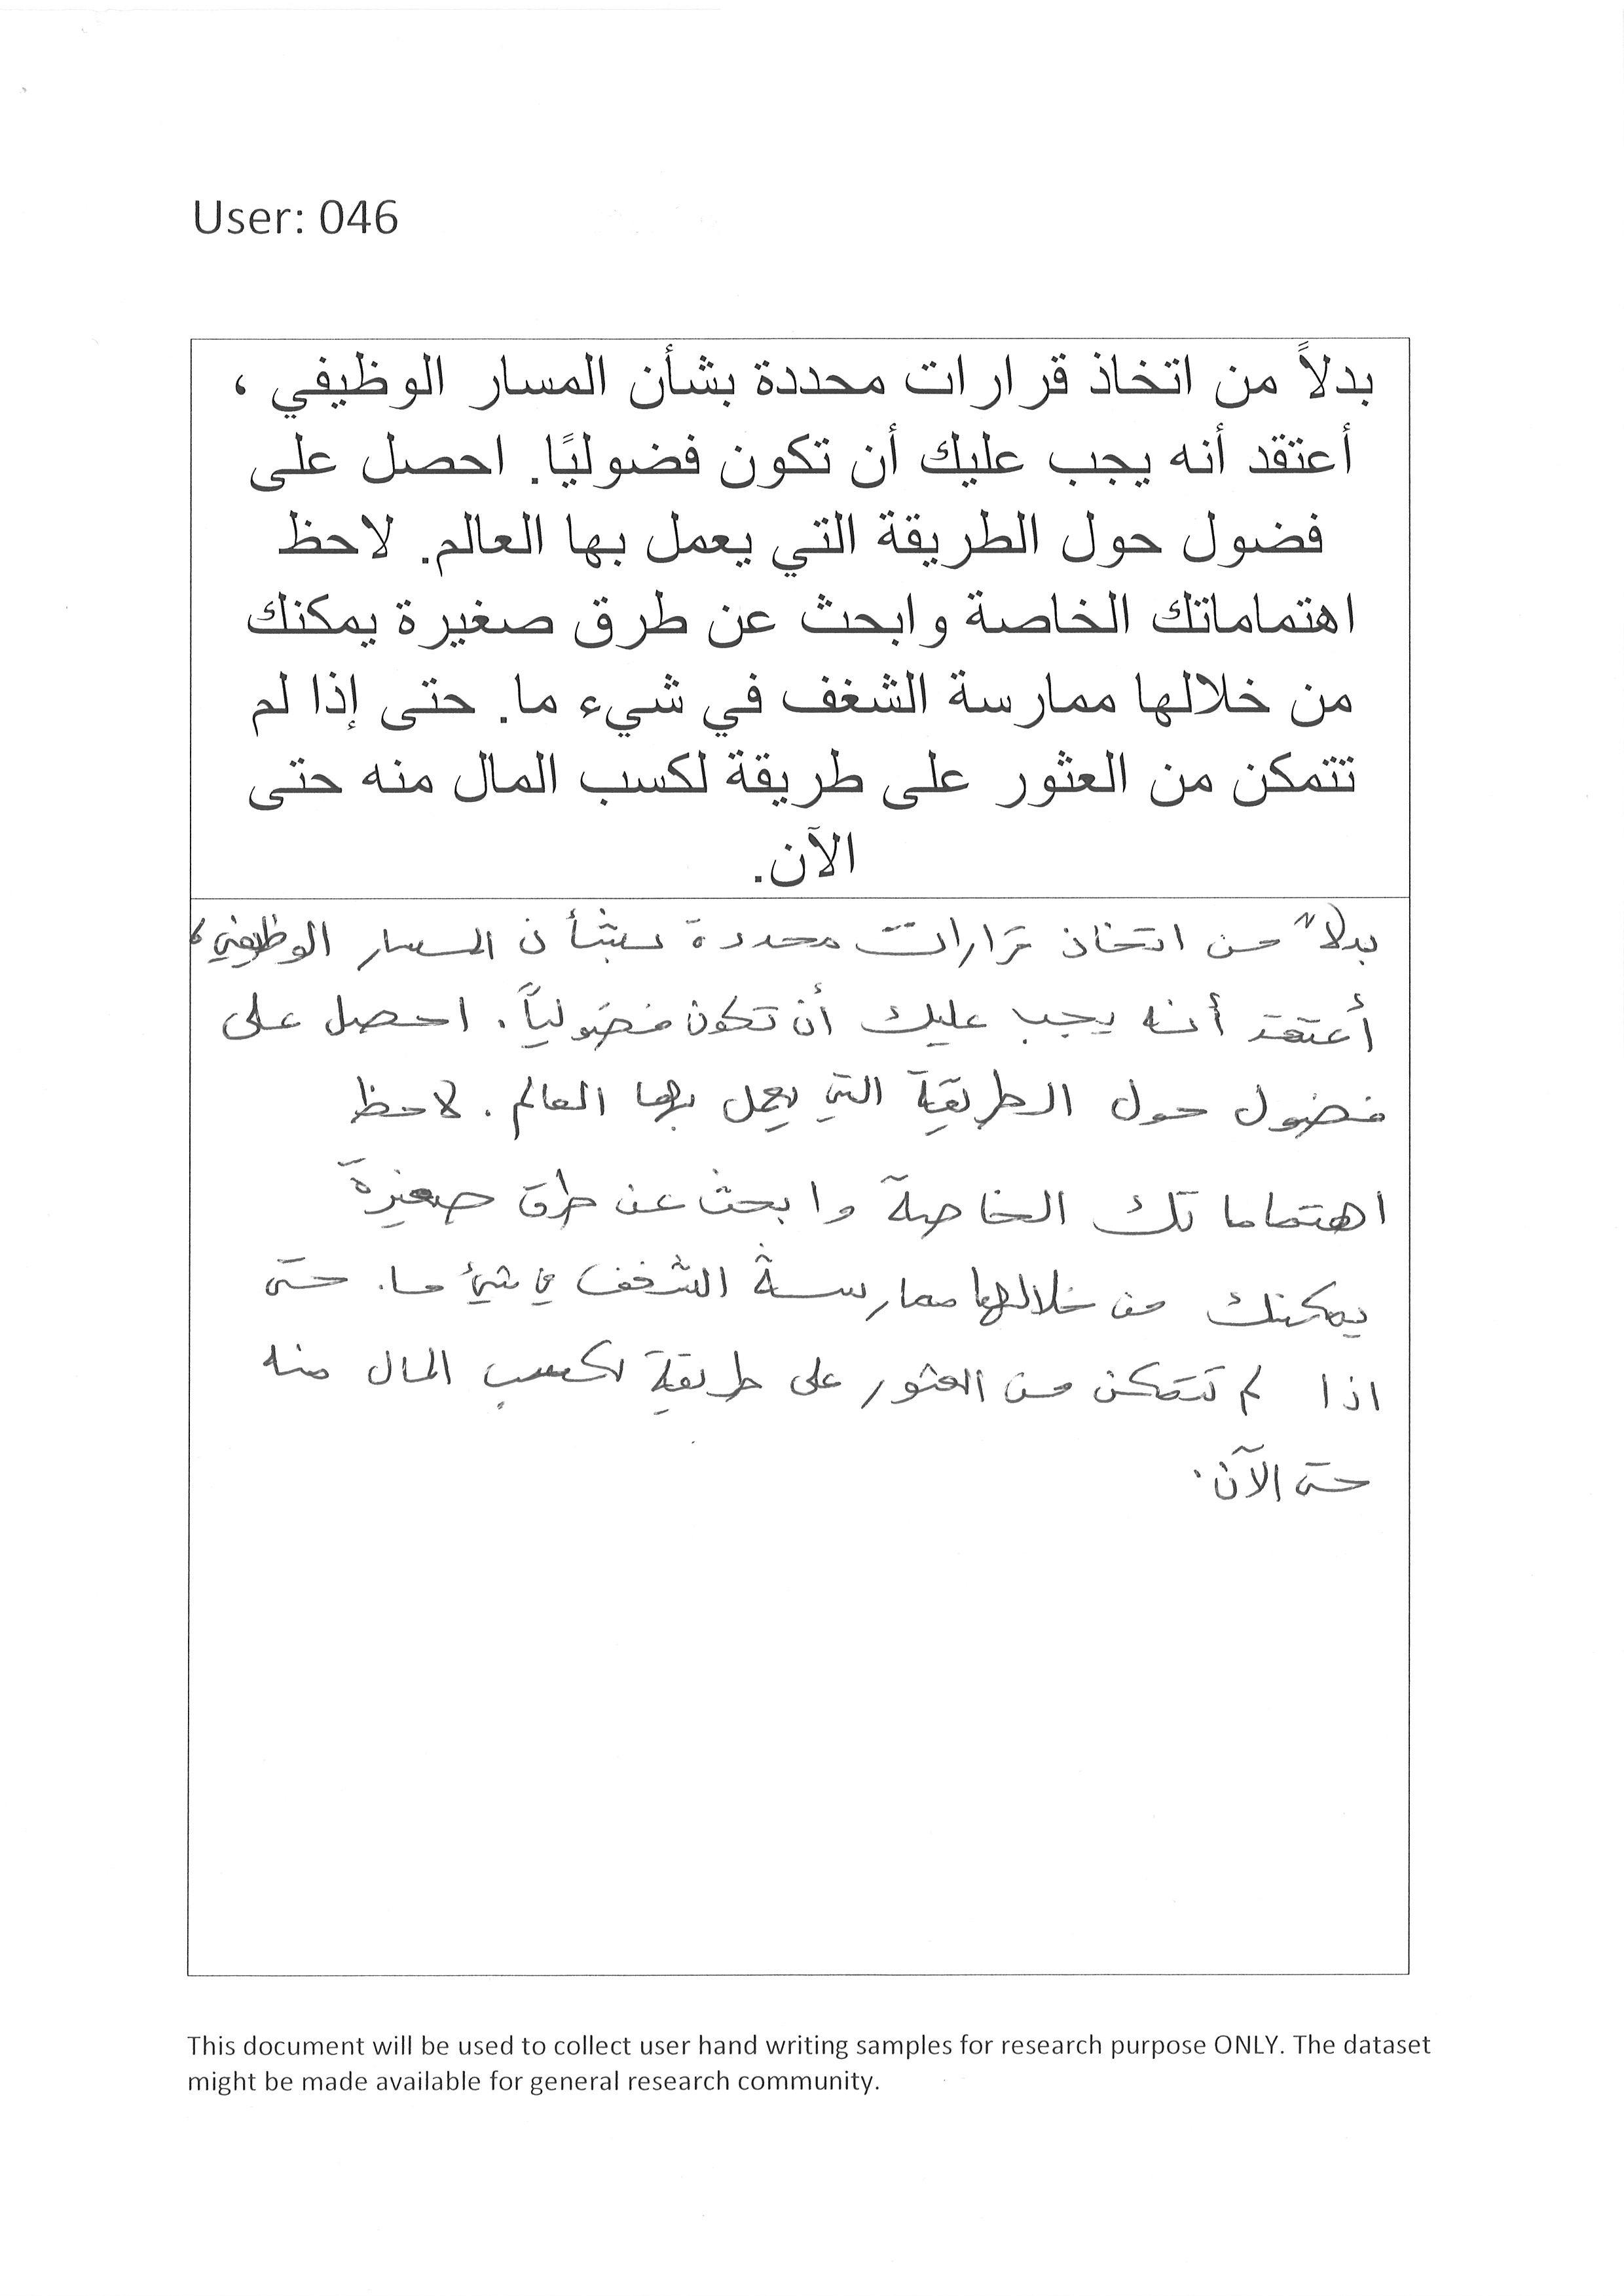 User: 046
بدلاً من اتخاذ قرارات محددة بشأن المسار الوظيفي ،
أعتقد أنه يجب عليك أن تكون فضوليًا. احصل على
فضول حول الطريقة التي يعمل بها العالم. لاحظ
اهتماماتك الخاصة وابحث عن طرق صغيرة يمكنك
من خلالها ممارسة الشغف في شيء ما. حتى إذا لم
تتمكن من العثور على طريقة لكسب المال منه حتى
الآن.
بدلاً من اتخاذ قرارات محددة بشأن المسار الوظيفي،
أعتقد أنه يجب عليك أن تكون فضولياً. احصل على
فضول حول الطريقة التي يعمل بها العالم. لاحظ
اهتماماتك الخاصة وابحث عن طرق صغيرة
يمكنك من خلالها ممارسة الشغف في شيء ما. حتى
اذا لم تتمكن من العثور على طريقة لكسب المال منه
حتى الآن.
This document will be used to collect user hand writing samples for research purpose ONLY. The dataset
might be made available for general research community.